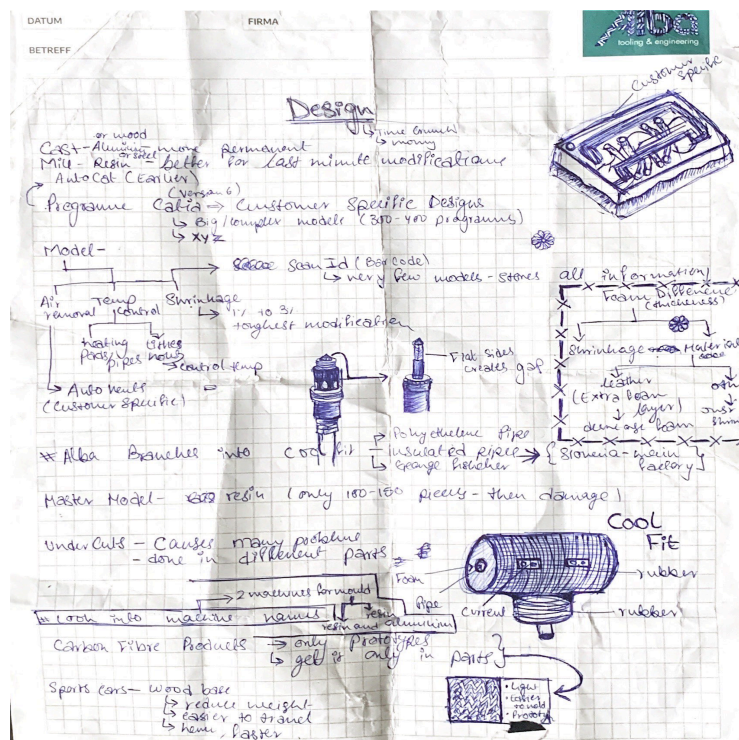 DATUM
FIRMA
Alba
tooling & engineering
BETREFF
Customer Specific
Design
↳ Time Crunch
↳ money
or wood
Cast - Aluminium - more permanent
or steel
Mill - Resin - better for last minute modifications
AutoCat (Earlier)
(Version 6)
Programme Catia ⇒ Customer Specific Designs
↳ Big/complex models (300-400 programms)
↳ xyz
Model-
Scan Id (Bar code)
↳ very few models - stores
Air removal
Temp control
Shrinkage
↳ 1% to 3%
toughest modification
heating
pipes
→ control temp
→ Auto vents
(Customer Specific)
Flat sides
creates gap
all information
Foam Difference
(thickness)
Shrinkage
Material
leather
(Extra foam
layer)
↓
foam
# Alba Branches into Cool fit
Polyethelene Pipe
insulated pipes
{Slovenia - main
factory}
Master Model- resin (only 100-150 pieces - then damage)
UnderCuts - Causes many problems
- done in different parts
Cool
Fit
Foam
Pipe
current
rubber
rubber
2 machines for mould
resin
resin and aluminium
# Look into machine names
Carbon Fibre Products → only prototypes
↳ get it only in parts}
Sports cars - wood base
↳ reduce weight
↳ easier to travel
↳ hence, faster
• Light
• Easier
to mold
• Prototy